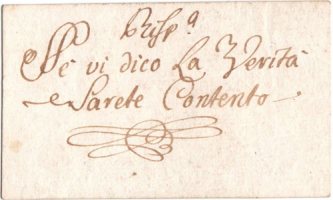 Risp.ª
Se vi dico La Verità
Sarete Contento